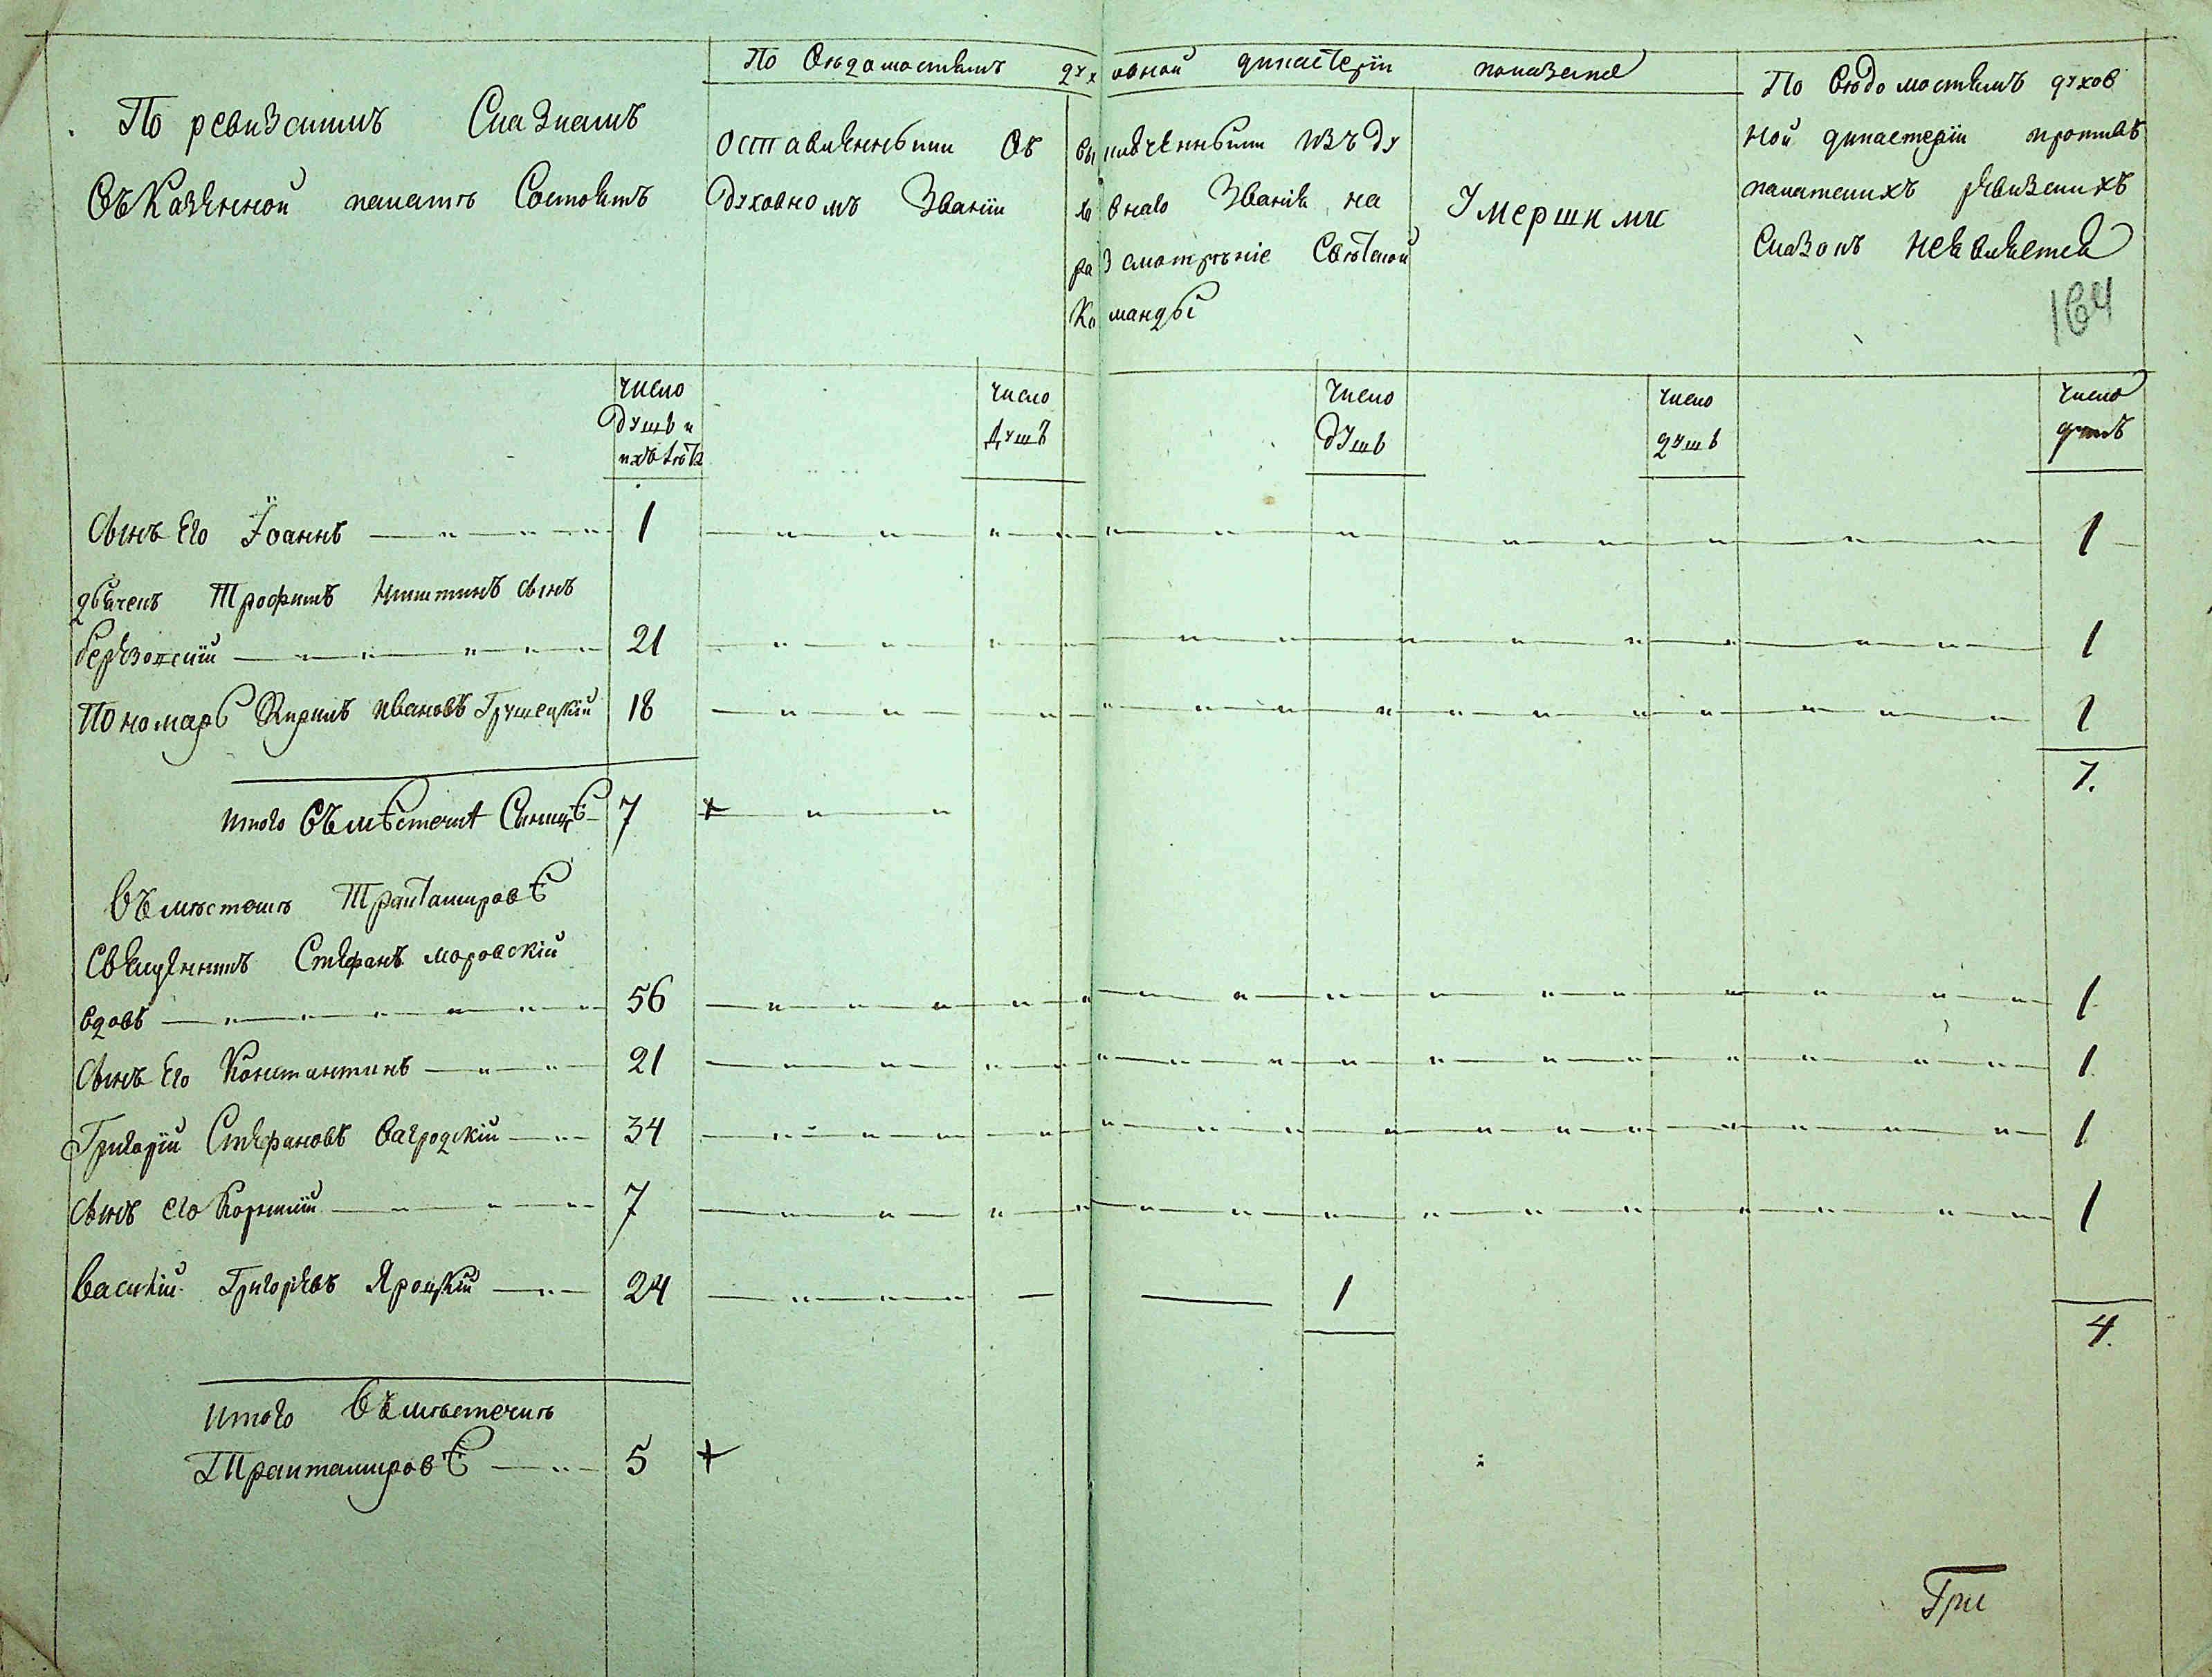 По ревизскимъ Сказкамъ
Въ Казенной палатѣ Состоитъ
По Вѣдомостямъ духовной дикастеріи показано
Оставленными Въ
Духовномъ Званіи
выключенными изъ ду
ховнаго Званія на
разсмотрѣніе Свѣтской
Команды
Умершими
По Вѣдомостямъ духов
ной дикастеріи противъ
палатскихъ ревизскихъ
Сказокъ неявляется
164
число
Душъ и
ихъ лѣта
число
душъ
число
душъ
число
душъ
число
душъ
Сынъ Его Іоаннъ 1 1
дьячекъ Трофимъ Никитинъ Сынъ
Березовскій 21 1
Пономарь Кирилъ Ивановъ Грушецкій 18 1
7.
Итого Въ мѣстечкѣ 7 +
Въ мѣстечкѣ Трактамировѣ
Священникъ Стефанъ Моровскій
Вдовъ 56 1
Сынъ Его Константинъ 21 1
Григорій Стефановъ 34 1
Сынъ его Корнилій 7 1
Василій Григорьевъ Яроцкій 24 1
4.
Итого Въ мѣстечкѣ
Трактамировѣ 5 +
Гри